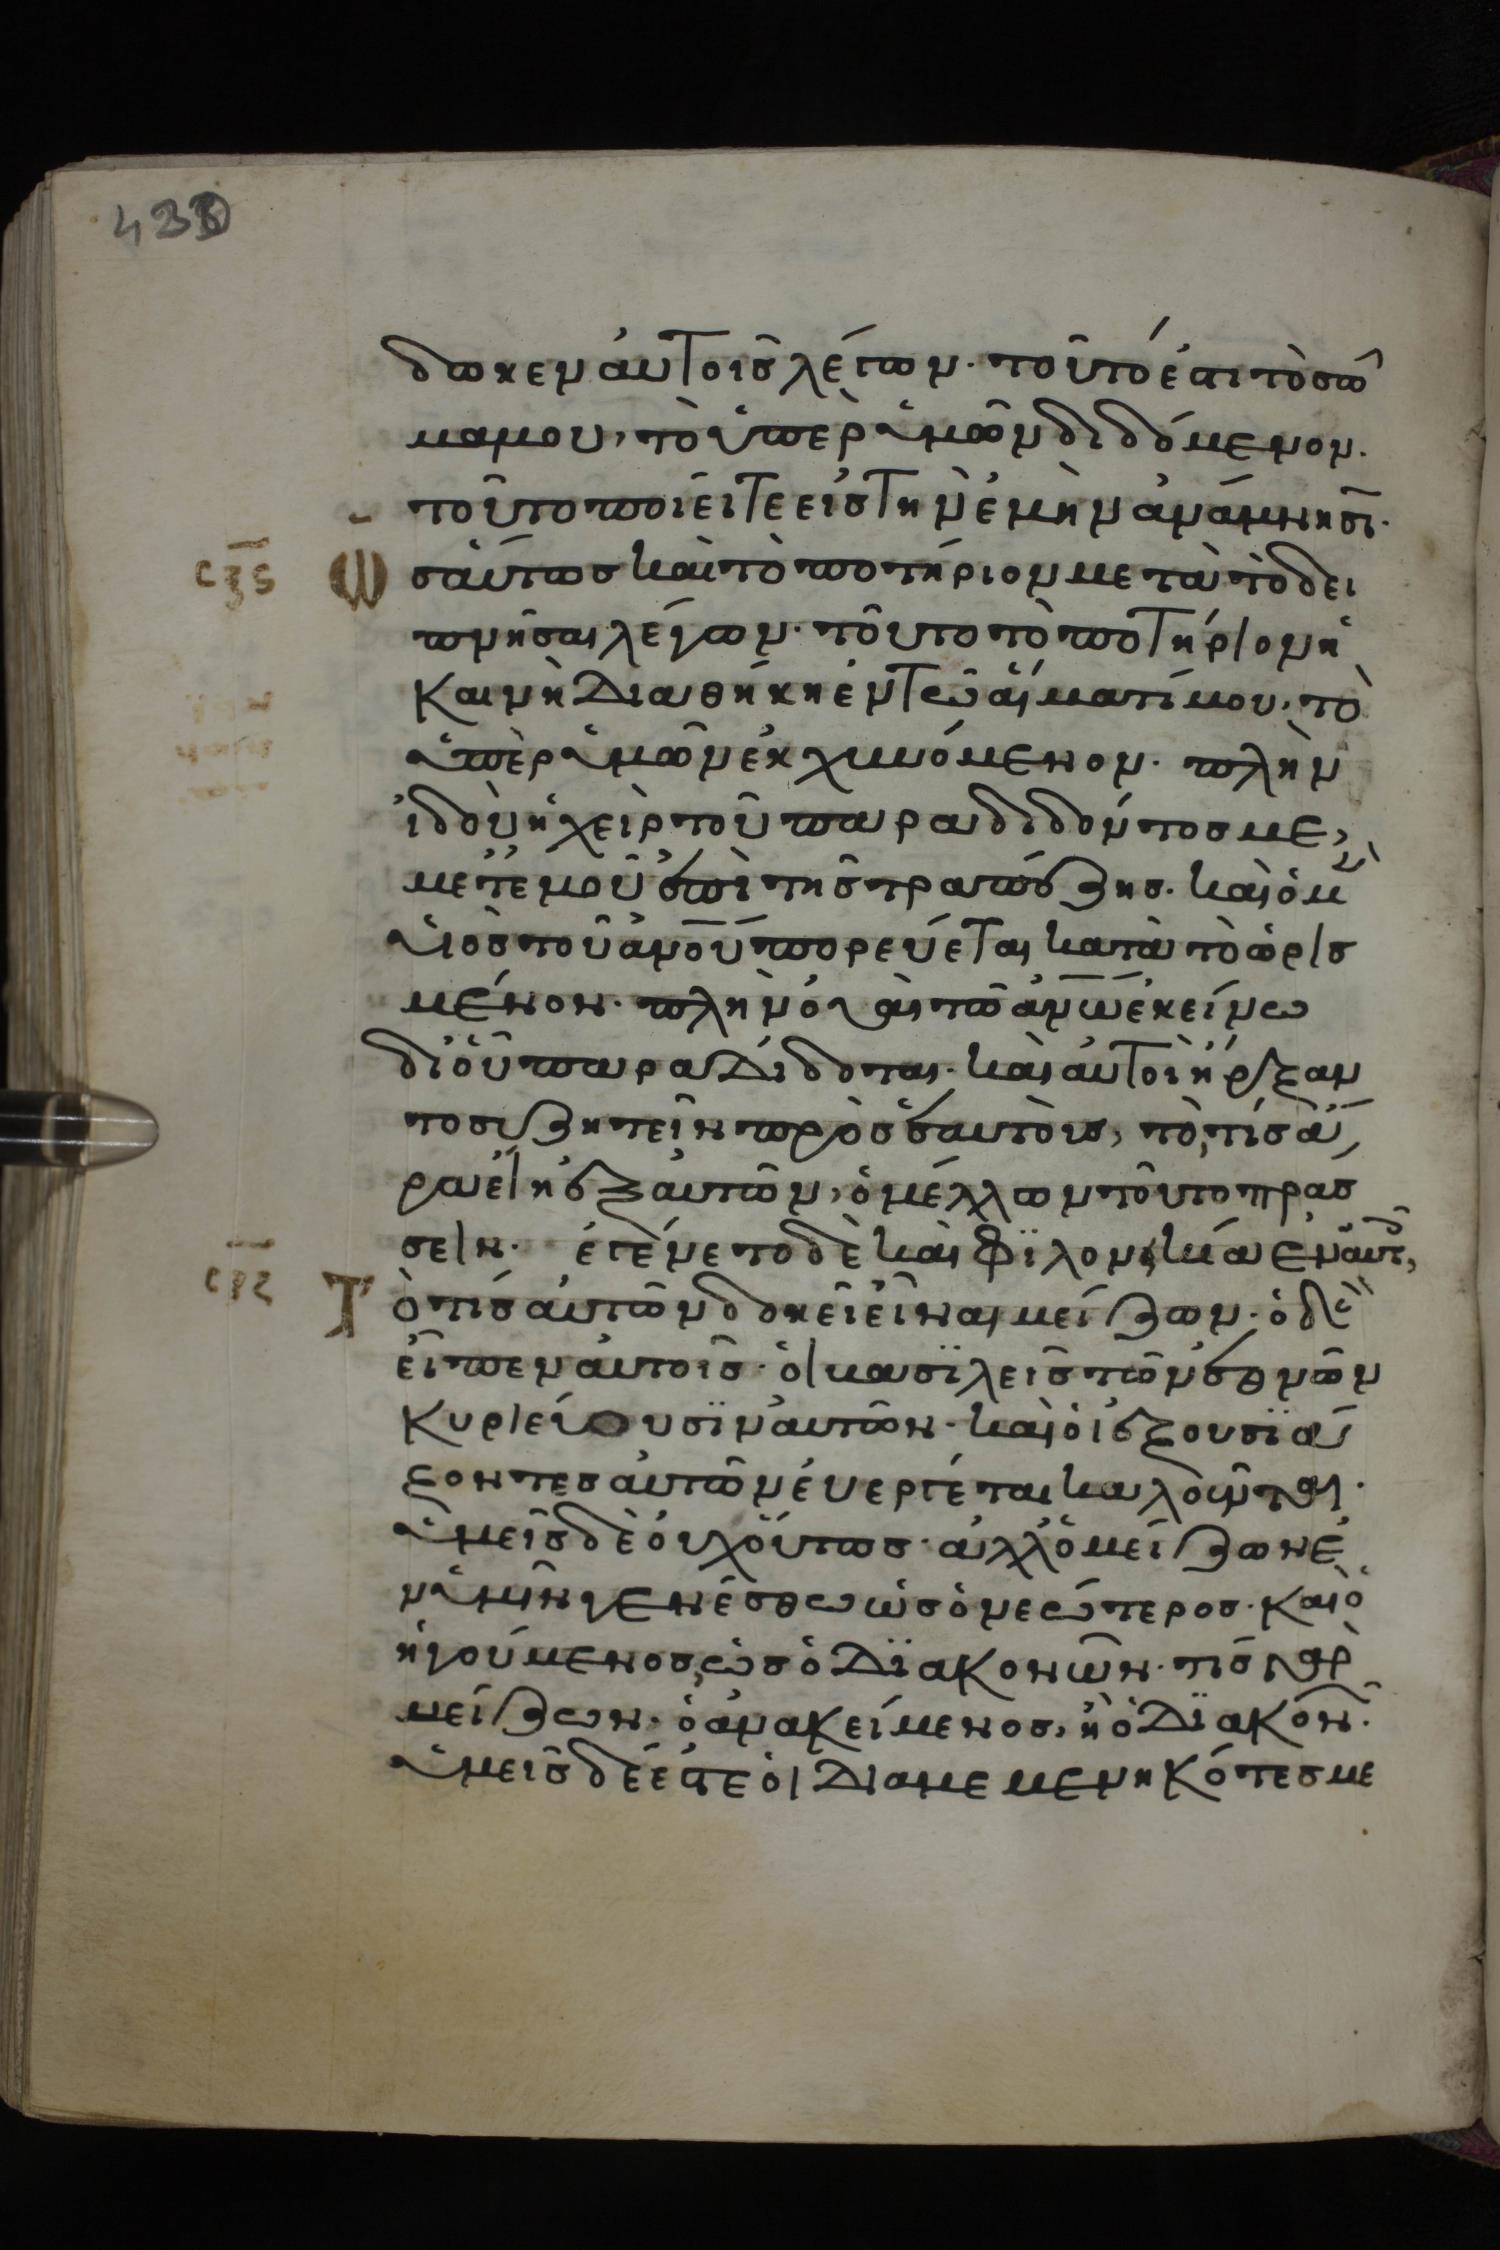 433
δωκεν ἀυτοῖς λέγων· τοῦτό ἐστι τὸ σῶ
μα μου, τὸ ὑπὲρ ὑμῶν διδόμενον·
τοῦτο ποιεῖτε εἰς τὴν ἐμὴν ἀνάμνησῑ·
ςξς Ὡσάυτως καὶ τὸ ποτήριον μετὰ τὸ δει
πνῆσαι λέγων· τοῦτο τὸ ποτήριον ἡ
καινὴ διαθήκη ἐν τῶ ἅιματί μου, τὸ
ὑπὲρ ὑμῶν ἐκχυνόμενον· πλὴν
ἰδοὺ ἡ χεὶρ τοῦ παραδιδόντος με,
μετ' ἐμοῦ ἐπὶ τῆς τραπέζης· καὶ ὁ μὲν
υἱὸς τοῦ ἀνου πορεύεται κατὰ τὸ ὡρισ
μένον· πλὴν ὀυαὶ τῶ ἀνω ἐκείνω
δι' ὁῦ παραδίδοται· καὶ ἀυτοὶ ἤρξαν
το συζητεῖν πρὸς ἑαυτοὺς, τὸ, τίς ἄ
ρα εἴη ἐξ ἀυτῶν, ὁ μέλλων τοῦτο πράσ
σειν· ἐγένετο δὲ καὶ φϊλονικία ἐν ἀυτοῖς,
ςξζ Τὸ τίς ἀυτῶν δοκεῖ εἶναι μείζων· ὁ δὲ
εἶπεν ἀυτοῖς· ὁι βασϊλεῖς τῶν ἐθνῶν
κυριεύουσϊν ἀυτῶν· καὶ ὁι ἐξουσϊά
ζοντες ἀυτῶν ἐυεργέται καλοῦνται·
ὑμεῖς δὲ ὀυχ ὅυτως· ἀλλ' ὁ μείζων ἐ
ν ὑμῖν γενέσθω ὡς ὁ νεώτερος· καὶ ὁ
ἡγούμενος, ὡς ὁ δϊακονῶν· τίς γὰρ
μείζων· ὁ ἀνακείμενος, ἢ ὁ δϊακον·
ὑμεῖς δέ ἐστε ὁι διαμεμενηκότες με